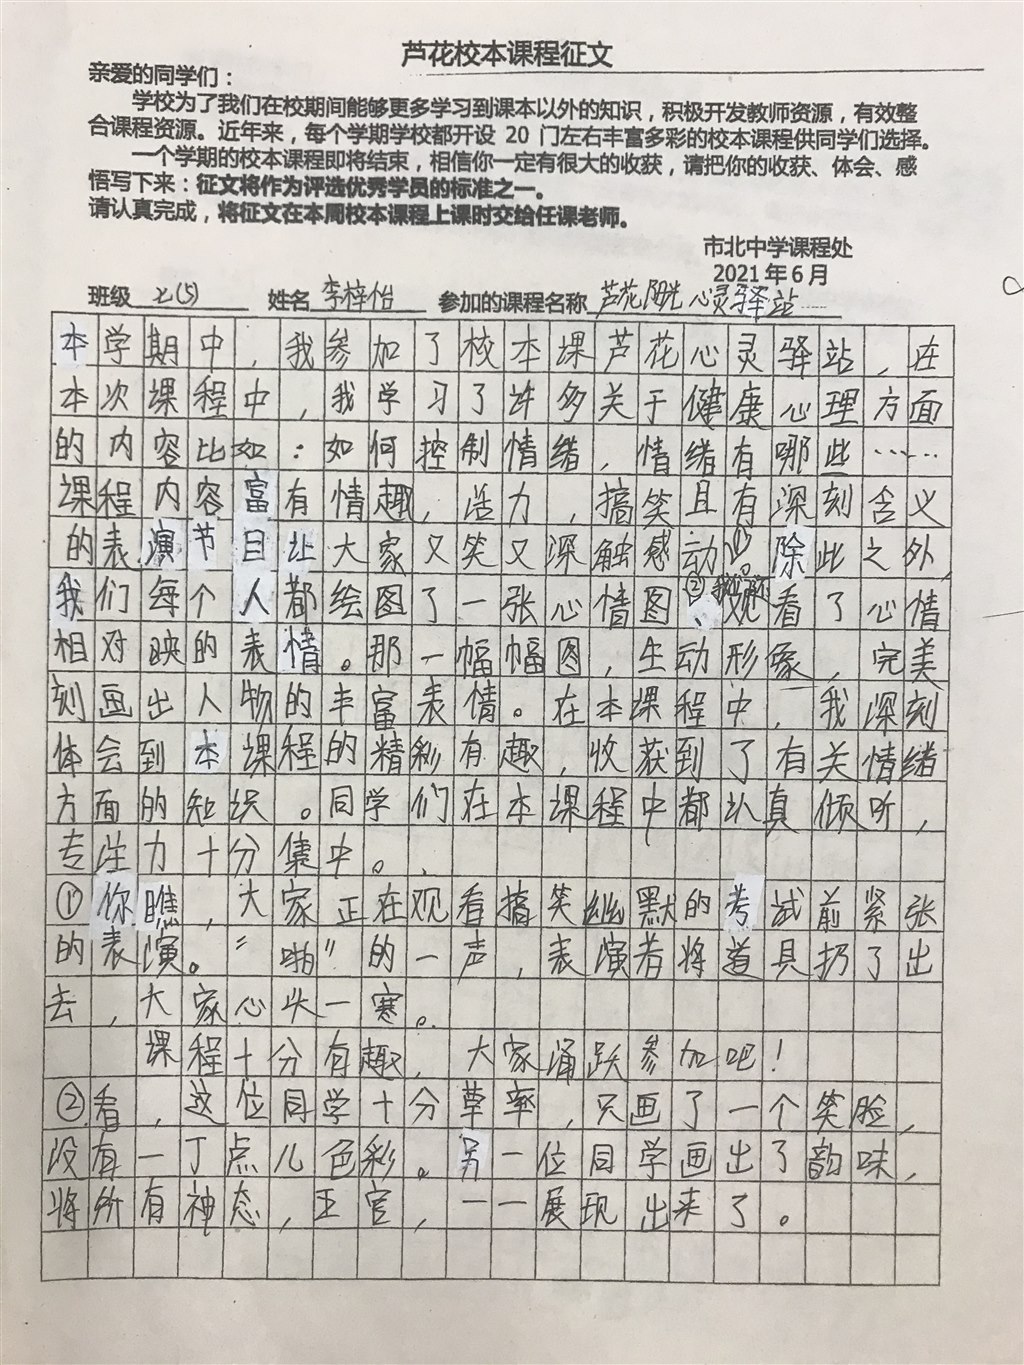 芦花校本课程征文
亲爱的同学们：
学校为了我们在校期间能够更多学习到课本以外的知识，积极开发教师资源，有效整
合课程资源。近年来，每个学期学校都开设 20 门左右丰富多彩的校本课程供同学们选择。
一个学期的校本课程即将结束，相信你一定有很大的收获，请把你的收获、体会、感
悟写下来：征文将作为评选优秀学员的标准之一。
请认真完成，将征文在本周校本课程上课时交给任课老师。
市北中学课程处
2021 年 6 月
班级 七(5) 姓名 李梓怡 参加的课程名称 芦花阳光心灵驿站
本学期中，我参加了校本课芦花心灵驿站，在
本次课程中，我学习了许多关于健康心理方面
的内容比如：如何控制情绪，情绪有哪些……
课程内容富有情趣，活力，搞笑且有深刻含义
的表演节目让大家又笑又深触感动①。除此之外，
我们每个人都绘图了一张心情图②、观看了心情
相对映的表情。那一幅幅图，生动形象，完美
刻画出人物的丰富表情。在本课程中，我深刻
体会到本课程的精彩有趣，收获到了有关情绪
方面的知识。同学们在本课程中都认真倾听，
专注力十分集中。
①你瞧，大家正在观看搞笑幽默的考试前紧张
的表演。“啪”的一声，表演者将道具扔了出
去，大家心头一寒。
课程十分有趣，大家涌跃参加吧！
②看，这位同学十分草率，只画了一个笑脸，
没有一丁点儿色彩。另一位同学画出了韵味，
将所有神态，五官，一一展现出来了。